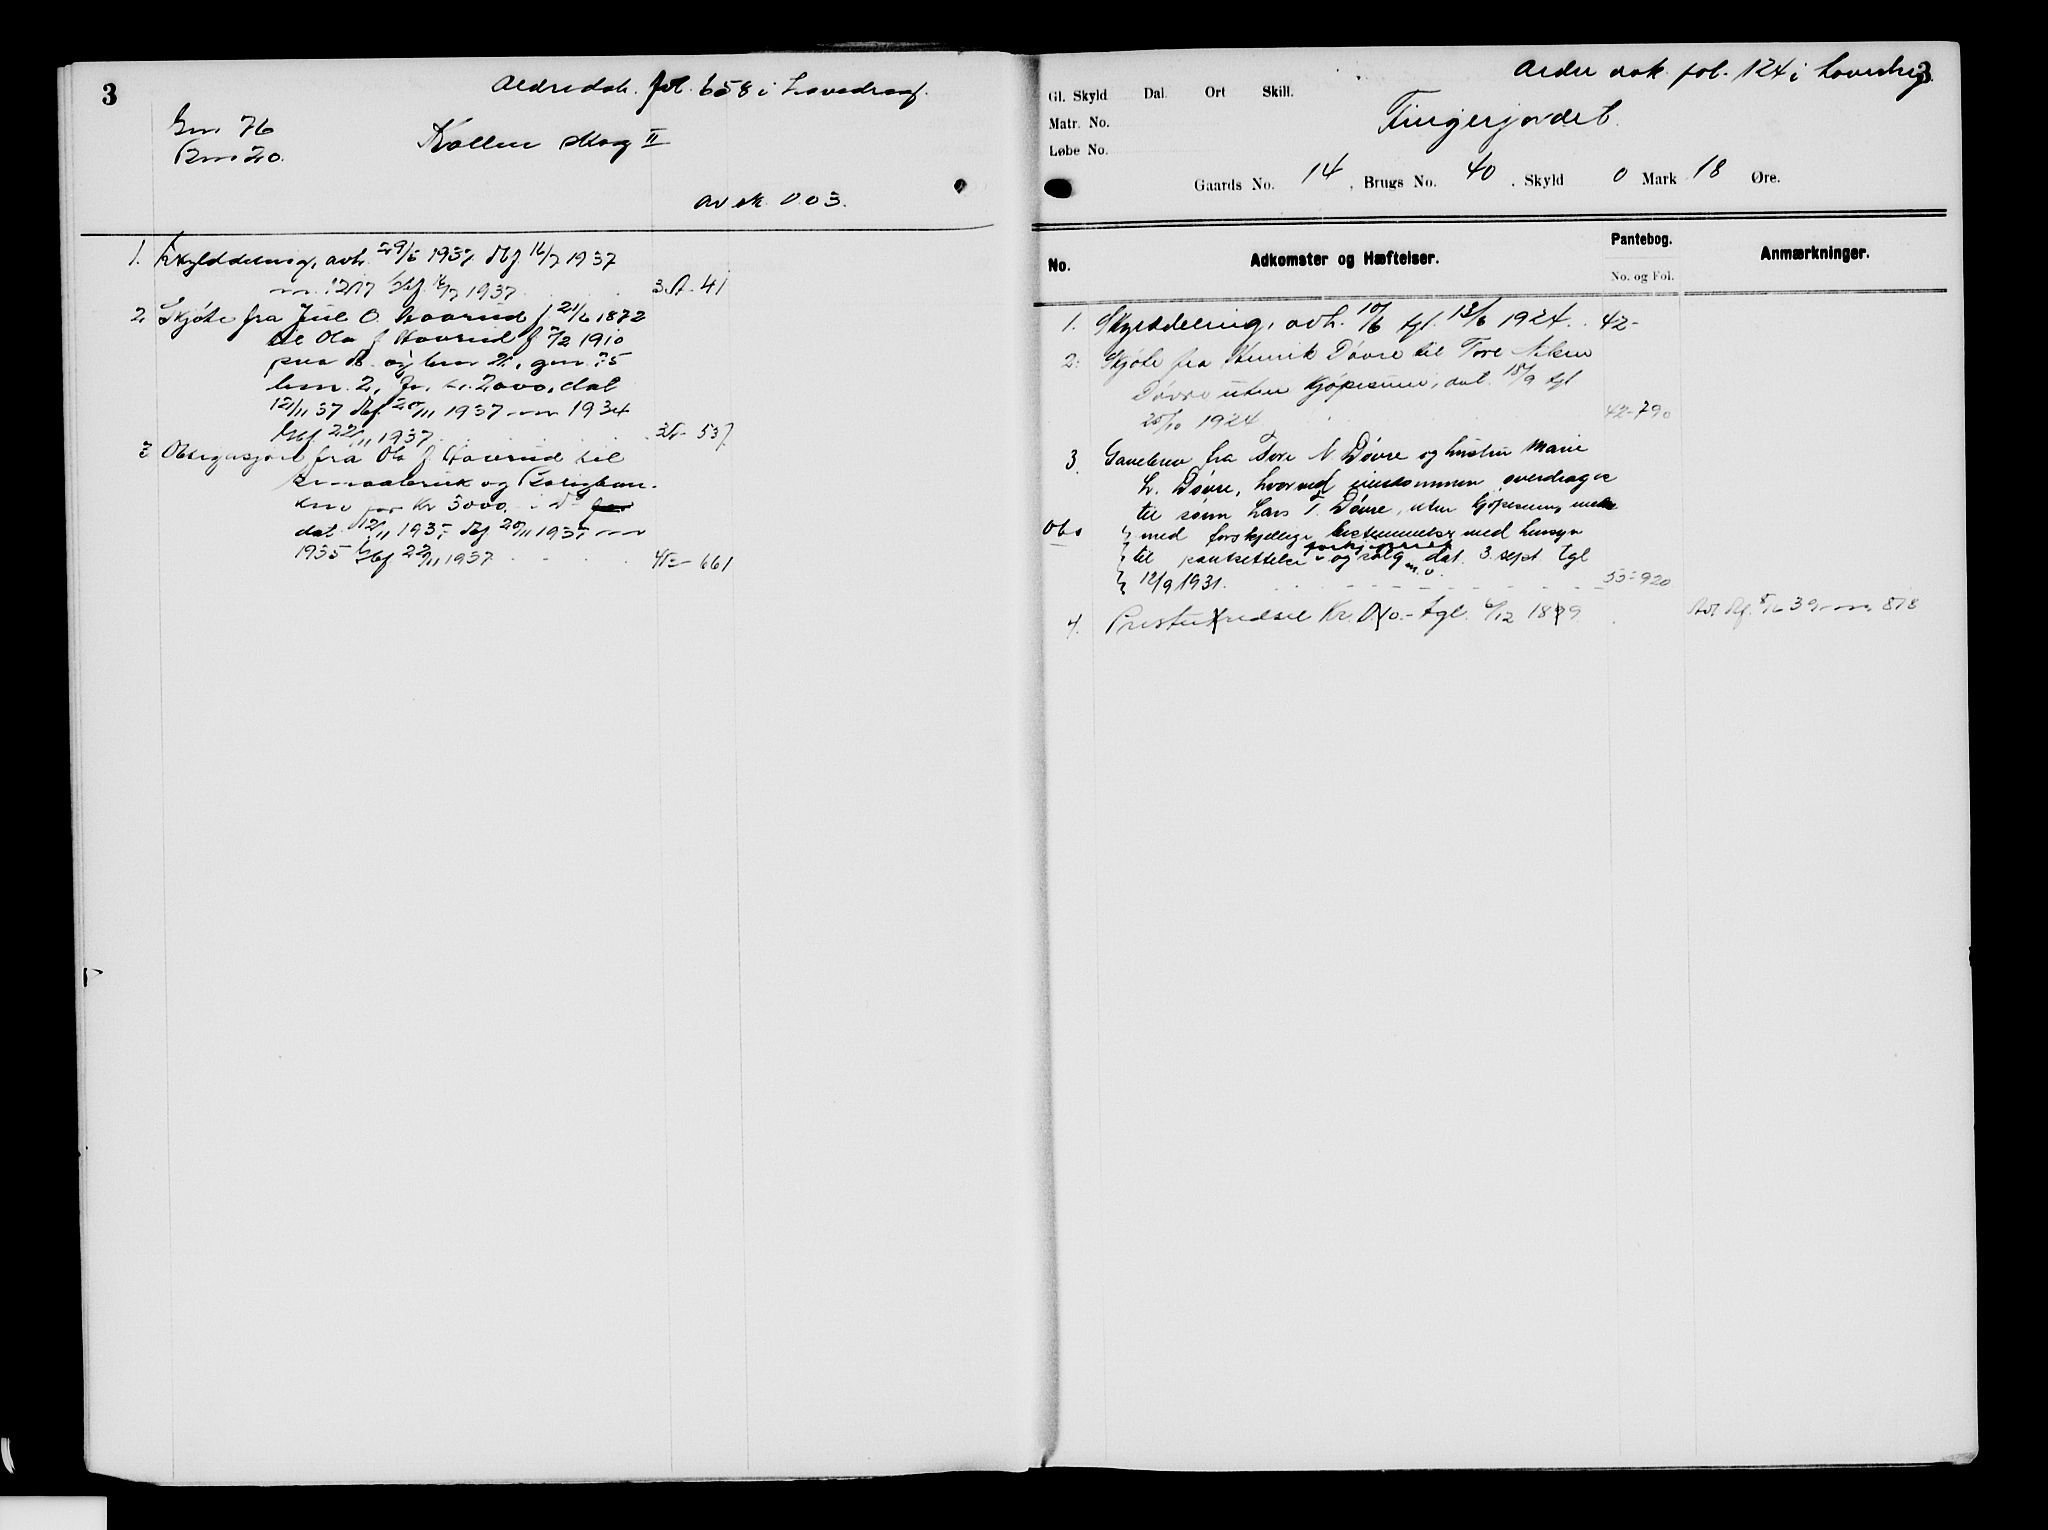 3
Ældre dok. fol. 658 i Hovedreg.
Gnr 76
Bnr 20.
Kollen skog II
av sk. 0.03.
1. Skylddeling, avh. 29/6 1937 dbf 16/7 1937
nr. 1217 tbf 16/7 1937 3.A-41
2. Skjøte fra Juul O. Haavrud f 21/6 1872
til Ola J Haavrud f 7/2 1910
paa d. og bnr 21, gnr. 75
bnr. 2, for kr. 2000, dat
12/11 37 dbf. 20/11 1937 nr 1934
tbf 22/11 1937 3A-537
3 Obligasjon fra Ola J Haavrud til
Smaabruk og Boligban-
ken for kr 3000. i D
dat 12/11 1937 dbf 20/11 1937 nr
1935 tbf 22/11 1937 661
Ældre dok. fol. 124 i hovedreg.
3
Gl. Skyld Dal. Ort Skill.
Matr. No.
Løbe No.
Tingerjordet.
Gaards No. 14, Brugs No. 40. Skyld 0 Mark 18 Øre.
No. Adkomster og Hæftelser. Pantebog. Anmærkninger.
No. og Fol.
1. Skylddeling, avh. 10/6 tgl. 13/6 1924. 42-
2. Skjøte fra Henrik Døvre til Tore Nilsen
Døvre uten kjøpesum, dat. 15/9 tgl
25/10 1924 42-790
3. Gavebrev fra Tore N. Døvre og hustru Marie
L. Døvre, hvorved eiendommen overdrages
til sønn Lars T. Døvre, uten kjøpesum
Obs med forskjellige bestemmelser med hensyn
til pantsettelse og salg m.v. dat. 3. sept. tgl
12/9 1931. 55-920
4. Kr. tgl. 6/12 1879. Avl dbf. 8/6 39 nr 878